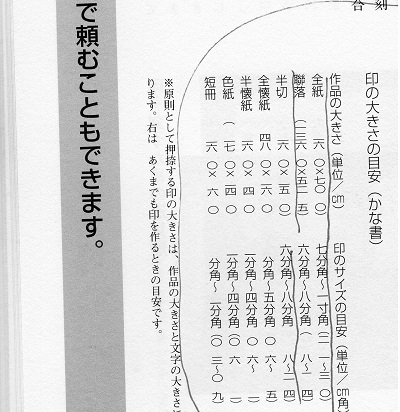 合刻
印の大きさの目安(かな書)
作品の大きさ(単位/㎝) 印のサイズの目安(単位/㎝角
全紙 六〇×七〇〇) 七分角〜一寸角(二一〜三〇)
聯落(一三六〇×五二五) 六分角〜八分角(八〜二四
半切 六〇×五〇) 六分角〜八分角 八〜二四
全懐紙 四八〇×六〇 分角〜五分角 〇六〜五
半懐紙 六〇×四〇 分角〜四分角 〇六〜
色紙(七〇×四〇 分角〜四分角(〇六
短冊 六〇×六〇 分角〜一分角(〇三〜〇九
※原則として押捺する印の大きさは、作品の大きさと文字の大きさに
ります。右は あくまでも印を作るときの目安です。
で頼むこともできます。